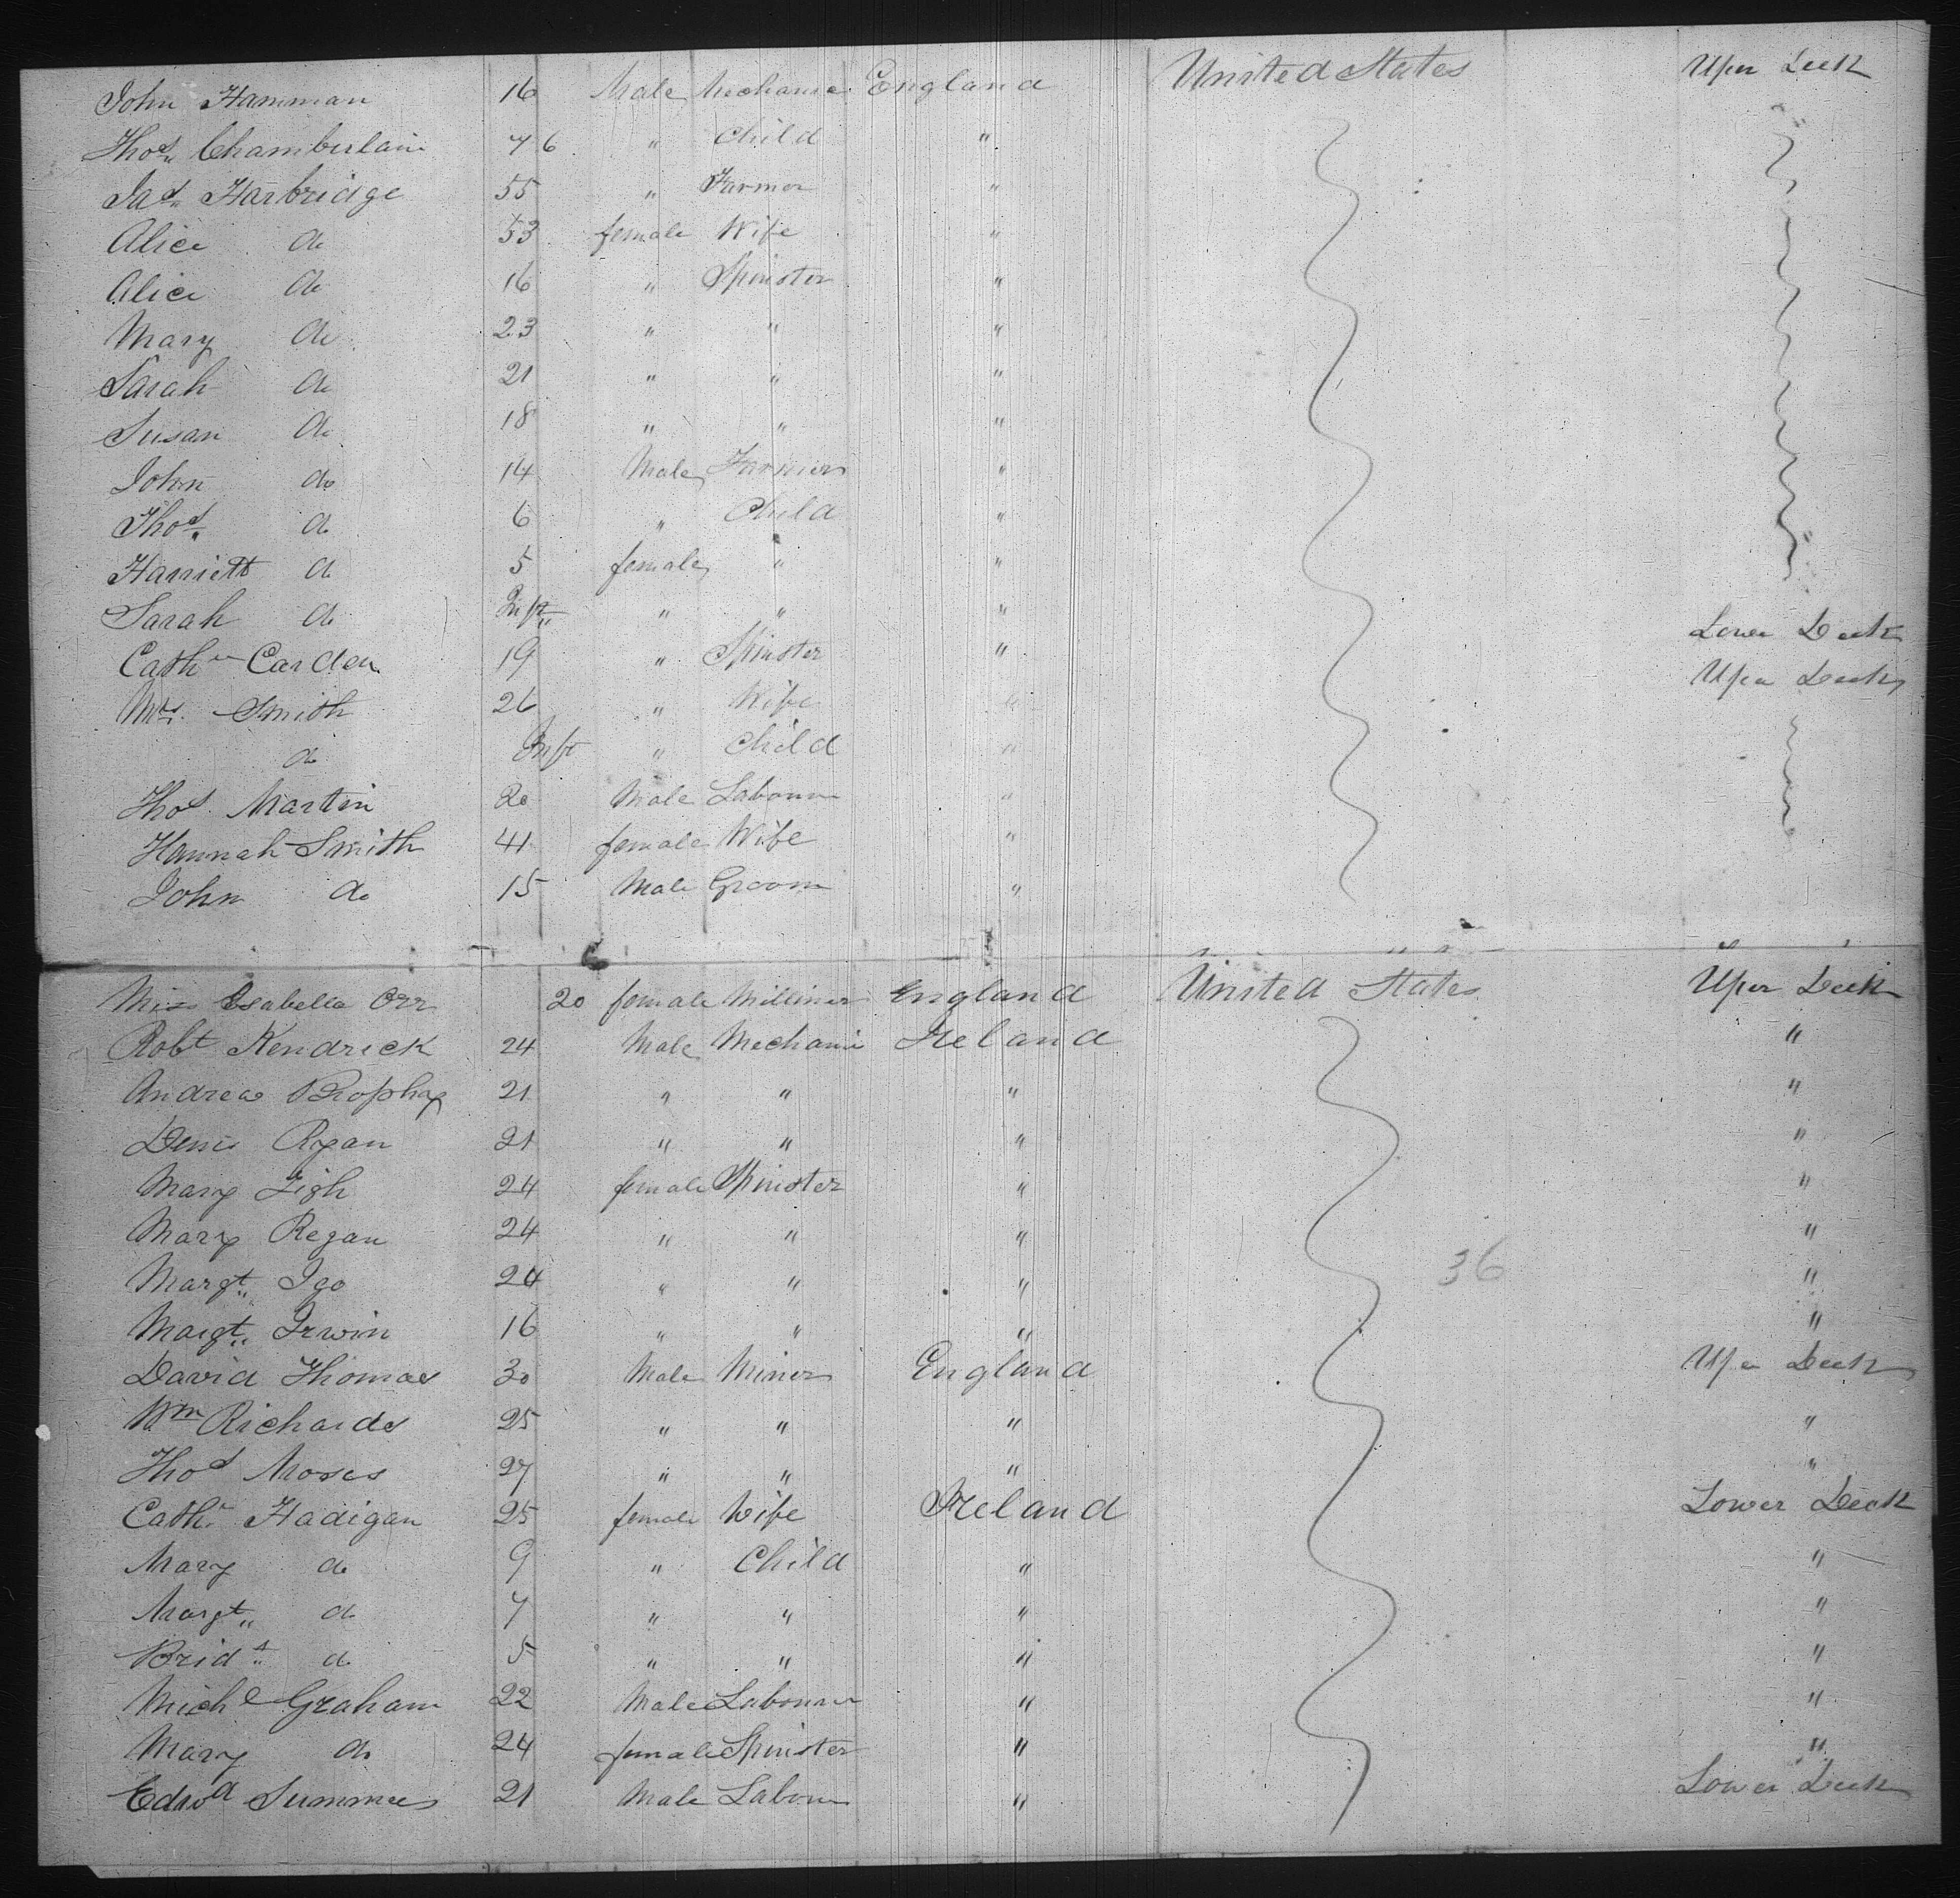 John Hamman 16 Male Mechanic England United States Uper Deck
Thos Chamberlain 7 6 " Child "
Jas Harbridge 55 " Farmer "
Alice do 53 female Wife "
Alice do 16 " Spinster "
Mary do 23 " " "
Sarah do 21 " " "
Susan do 18 " " "
John do 14 Male Farmer "
Thos do 6 " Child "
Harriett do 5 female " "
Sarah do Inft " " " Lower Deck
Cath Carden 19 " Spinster " Uper Deck
Mrs Smith 26 " Wife "
do Inft " Child "
Thos Martin 20 Male Labourer "
Hannah Smith 41 female Wife "
John do 15 Male Groom "
Miss Isabella Orr 20 female Milliner England United States Uper Deck
Robt Kendrick 24 Male Mechanic Ireland "
Andrew Brophy 21 " " " "
Denis Ryan 21 " " " "
Mary 24 female Spinster " "
Mary Regan 24 " " " "
Margt Igo 24 " " " 36 "
Margt Irwin 16 " " " "
David Thomas 30 Male Miner England Uper Deck
Wm Richards 25 " " " "
Thos Moses 27 " " " "
Cath Hadigan 25 female Wife Ireland Lower Deck
Mary do 9 " Child " "
Margt do 7 " " " "
Bridt do 5 " " " "
Michl Graham 22 Male Labourer " "
Mary do 24 female Spinster " "
Edwd Summers 21 Male Labour " Lower Deck